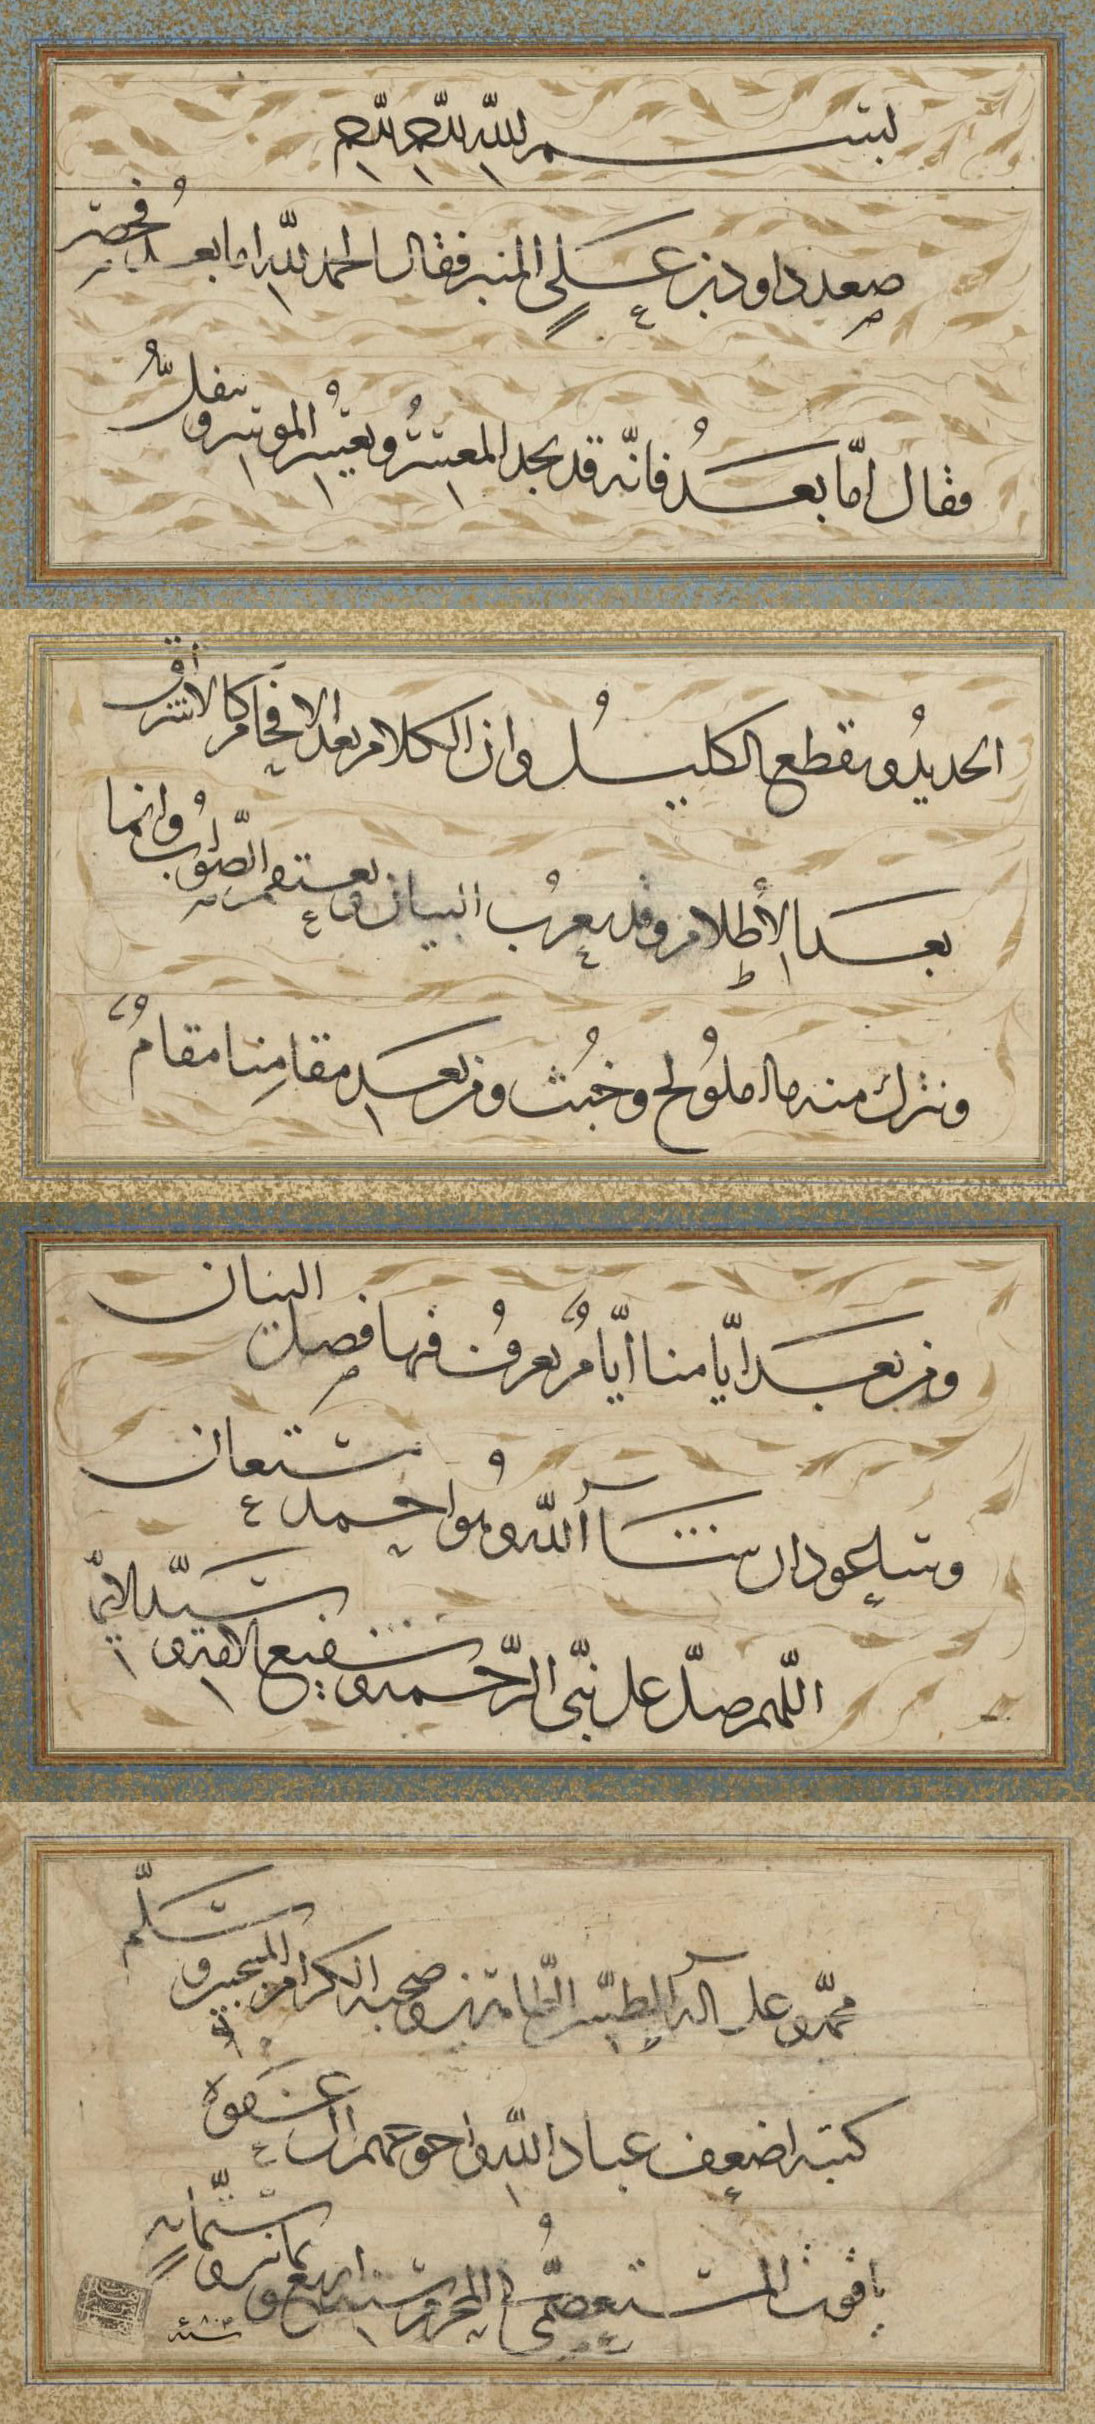 بسم الله الرحمن الرحيم
صعد داود بن علي المنبر فقال الحمد لله اما بعد فحصر
فقال امّا بعد فانّه قد يجد المعسر ويعسر الموسر ويفلّ
الحديد ويقطع الكليل وان الكلام بعد الافحام كالاشراق
بعد الأظلام وقد يعزب البيان ويعتقم الصّواب وانما
ونترك منه ما املولح وخبث ومن بعد مقامنا مقام
ومن بعد ايّامنا ايّام يعرف فيها فصل البيان
وسنعود ان شآ الله وهو احمد مستعان
اللّهم صلّ على نبّى الرّحمة وشفيع الامة سيّد الانام
محمّد وعلى آله الطيّبين الطاهرين وصحبه الكرام وسلّم
كتبه اضعف عباد الله واحوجهم الى عفوه
ياقوت المستعصمّى المحرم سنه اربع وثمانين وستّمائه